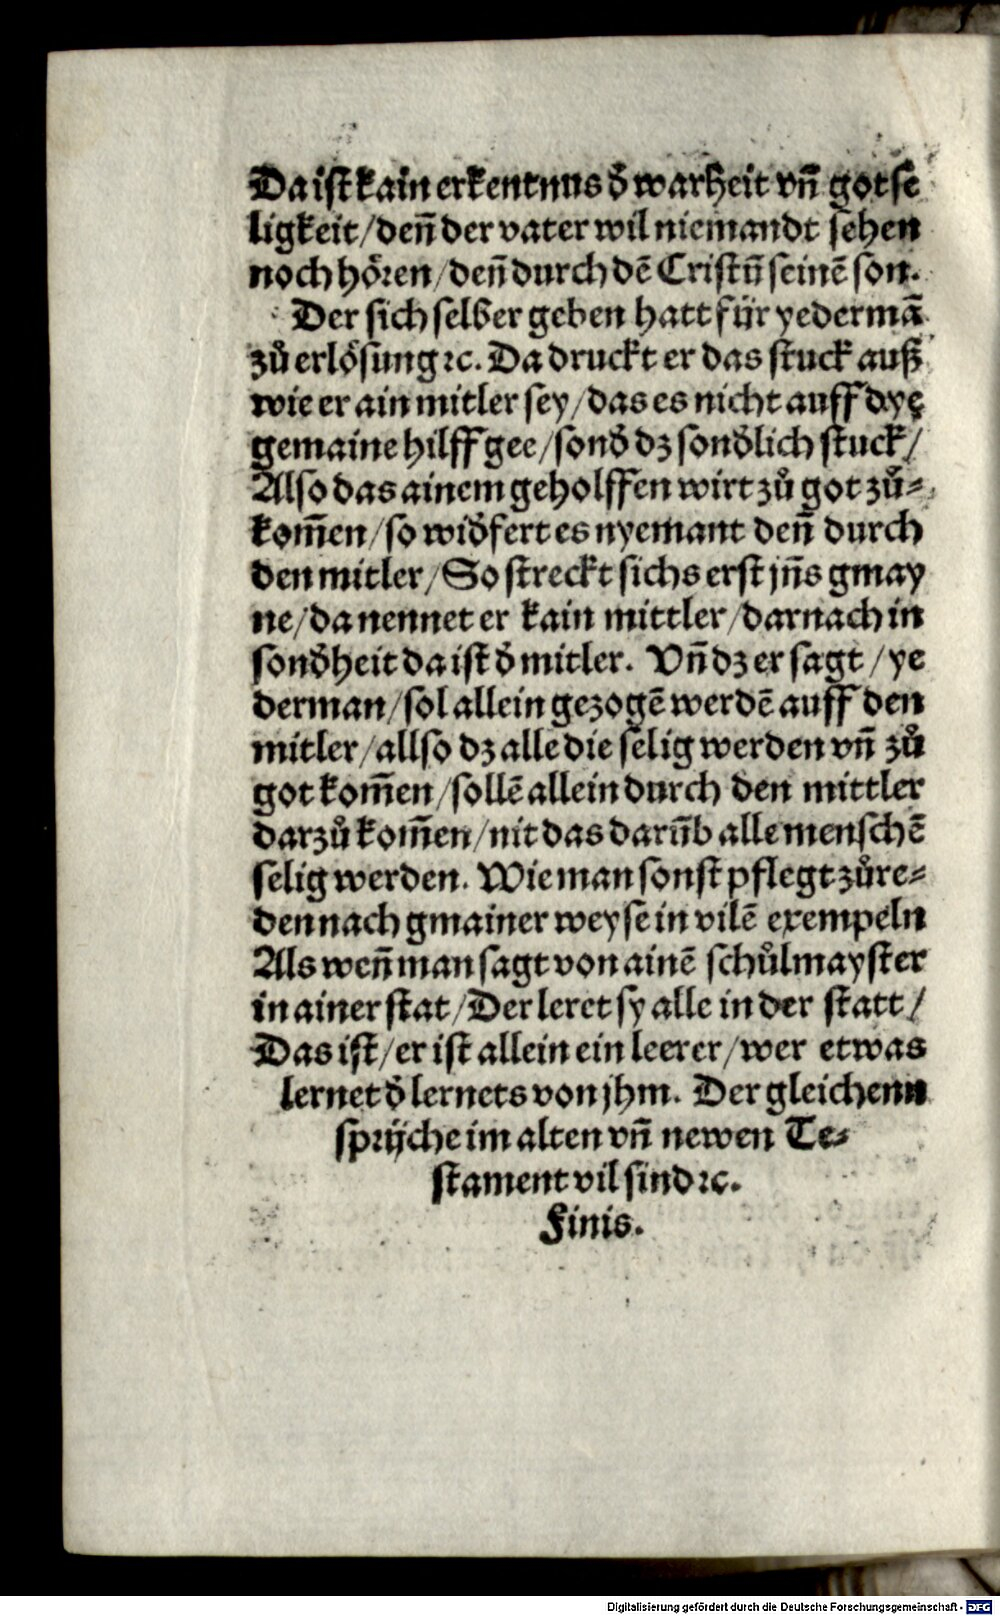 Da ist kain erkentnus d̄ warheit vn̄ gotse
ligkeit / den̄ der vater wil niemandt sehen
noch hören / den̄ durch dē Cristū seinē son.
Der sich selber geben hatt für yedermā
zů erlösung ꝛc. Da druckt er das stuck auß
wie er ain mitler sey / das es nicht auff dye
gemaine hilff gee / sond̄ dz sond̄lich stuck /
Also das ainem geholffen wirt zů got zů⸗
kom̄en / so wid̄fert es nyemant den̄ durch
den mitler / So streckt sichs erst jn̄s gmay
ne / da nennet er kain mittler / darnach in
sond̄heit da ist d̄ mitler. Vn̄ dz er sagt / ye
derman / sol allein gezogē werdē auff den
mitler / allso dz alle die selig werden vn̄ zů
got kom̄en / sollē allein durch den mittler
darzů kom̄en / nit das darūb alle menschē
selig werden. Wie man sonst pflegt zů re⸗
den nach gmainer weyse in vilē exempeln
Als wen̄ man sagt von ainē schůlmayster
in ainer stat / Der leret sy alle in der statt /
Das ist / er ist allein ein leerer / wer etwas
lernet d̄ lernets von jhm. Der gleichenn
sprüche im alten vn̄ newen Te⸗
stament vil sind ꝛc.
Finis.
Digitalisierung gefördert durch die Deutsche Forschungsgemeinschaft - DFG